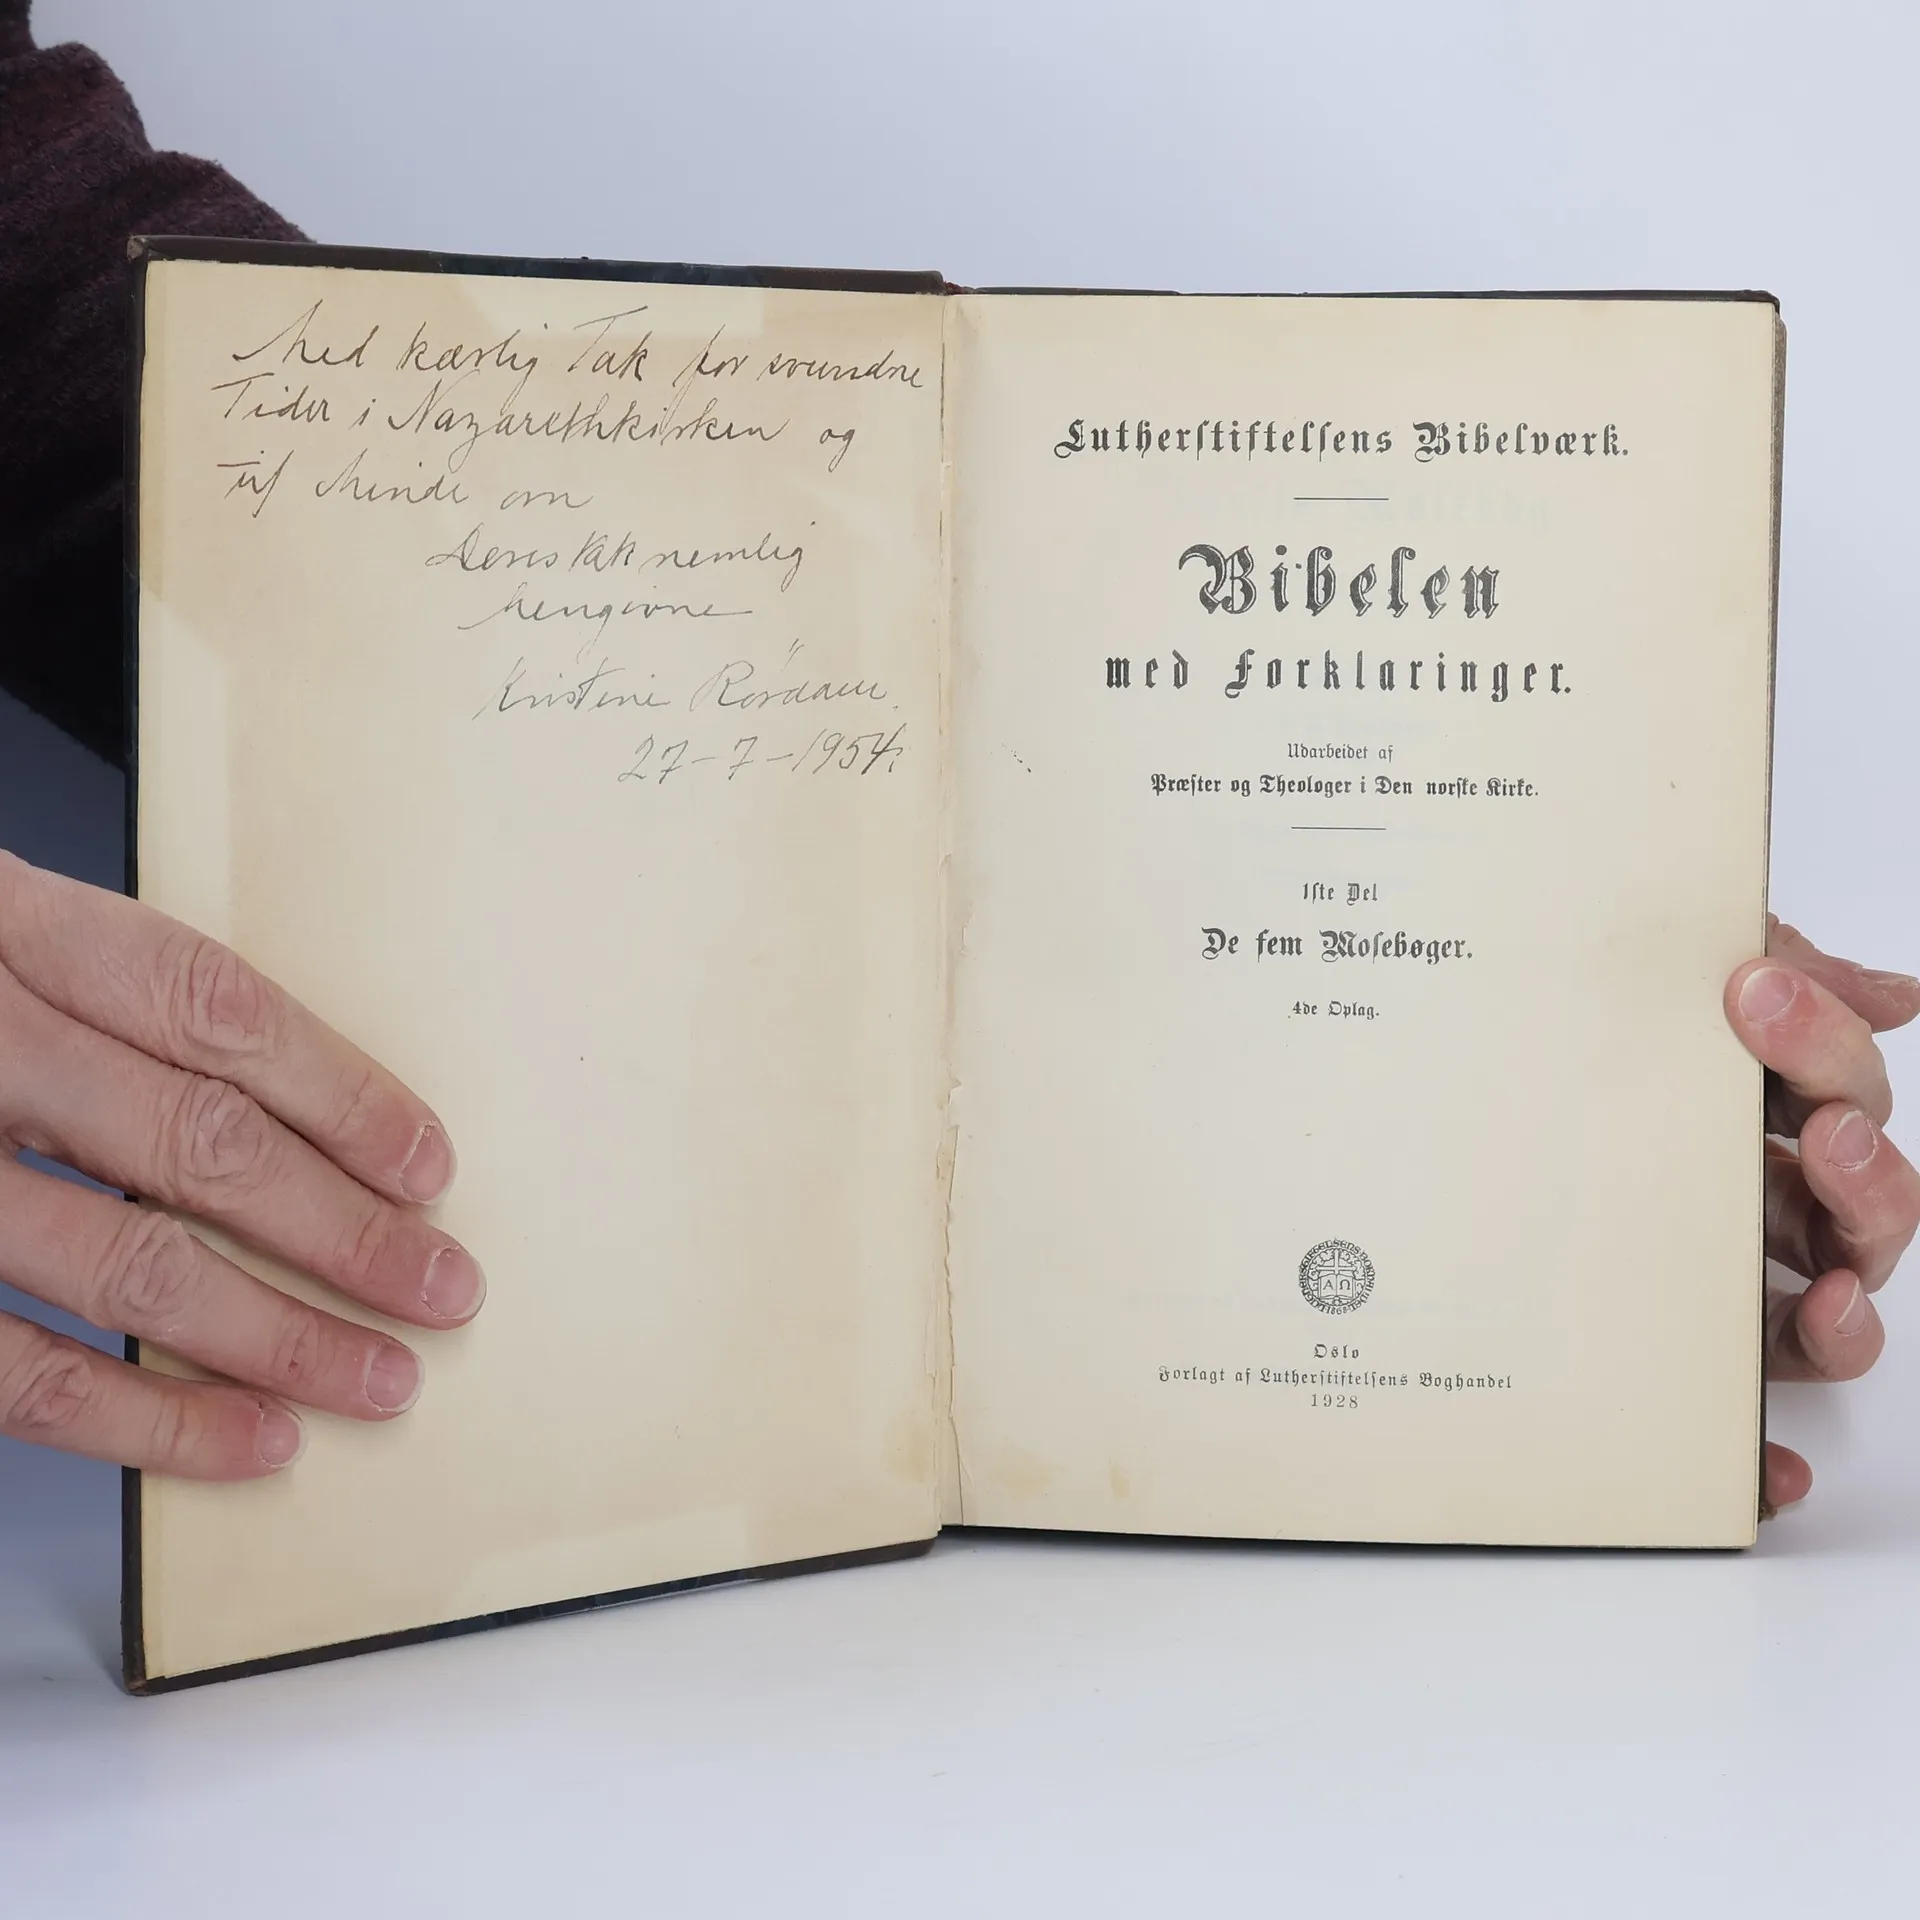 Med kærlig Tak for svundne
Tider i Nazarethkirken og
til Minde om
Deres taknemlig
hengivne
Kristine Rördam.
27-7-1954.
Lutherstiftelsens Bibelværk.
Bibelen
med Forklaringer.
Udarbeidet af
Præster og Theologer i Den norske Kirke.
1ste Del
De fem Mosebøger.
4de Oplag.
LUTHERSTIFTELSENS BOKHANDEL 1868
A Ω
Oslo
Forlagt af Lutherstiftelsens Boghandel
1928